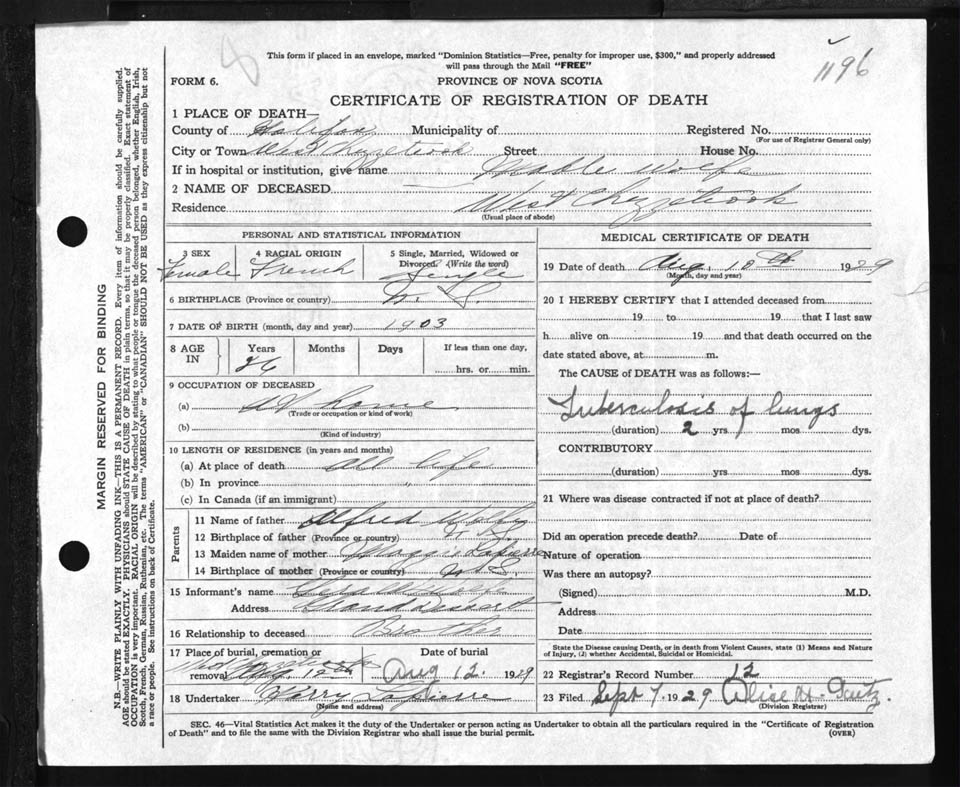 This form if placed in an envelope, marked "Dominion Statistics—Free, penalty for improper use, $300," and properly addressed
will pass through the Mail "FREE"
1196
FORM 6.
PROVINCE OF NOVA SCOTIA
CERTIFICATE OF REGISTRATION OF DEATH
1 PLACE OF DEATH—
County of Halifax Municipality of Registered No.
(For use of Registrar General only)
City or Town West Chezzetcook Street House No.
If in hospital or institution, give name Mable Wolfe
2 NAME OF DECEASED
Residence West Chezzetcook
(Usual place of abode)
PERSONAL AND STATISTICAL INFORMATION
3 SEX 4 RACIAL ORIGIN 5 Single, Married, Widowed or
Divorced (Write the word)
Female French Single
6 BIRTHPLACE (Province or country) N. S.
7 DATE OF BIRTH (month, day and year) 1903
8 AGE IN Years Months Days If less than one day,
26 hrs. or min.
9 OCCUPATION OF DECEASED
(a) At home
(Trade or occupation or kind of work)
(b)
(Kind of industry)
10 LENGTH OF RESIDENCE (in years and months)
(a) At place of death all life
(b) In province "
(c) In Canada (if an immigrant)
Parents
11 Name of father Alfred Wolfe
12 Birthplace of father (Province or country) N. S.
13 Maiden name of mother Maggie Lapierre
14 Birthplace of mother (Province or country) N. S.
15 Informant's name Wolfe
Address
16 Relationship to deceased Brother
17 Place of burial, cremation or Date of burial
removal Aug 12. 1929
18 Undertaker Harry Lapierre
(Name and address)
MEDICAL CERTIFICATE OF DEATH
19 Date of death Aug. 10th 1929
(Month, day and year)
20 I HEREBY CERTIFY that I attended deceased from
19 to 19 that I last saw
h alive on 19 and that death occurred on the
date stated above, at m.
The CAUSE of DEATH was as follows:—
Tuberculosis of lungs
(duration) 2 yrs mos dys.
CONTRIBUTORY
(duration) yrs. mos. dys.
21 Where was disease contracted if not at place of death?
Did an operation precede death? Date of
Nature of operation
Was there an autopsy?
(Signed) M.D.
Address
Date
State the Disease causing Death, or in death from Violent Causes, state (1) Means and Nature
of Injury, (2) whether Accidental, Suicidal or Homicidal.
22 Registrar's Record Number 12
23 Filed Sept 7, 1929 Alise M. Gaetz.
(Division Registrar)
SEC. 46—Vital Statistics Act makes it the duty of the Undertaker or person acting as Undertaker to obtain all the particulars required in the "Certificate of Registration
of Death" and to file the same with the Division Registrar who shall issue the burial permit.
(OVER)
MARGIN RESERVED FOR BINDING
N.B.—WRITE PLAINLY WITH UNFADING INK—THIS IS A PERMANENT RECORD. Every item of information should be carefully supplied.
AGE should be stated EXACTLY. PHYSICIANS should STATE CAUSE OF DEATH in plain terms, so that it may be properly classified. Exact statement of
OCCUPATION is very important. RACIAL ORIGIN will be described by stating to what people or tongue the deceased person belonged, whether English, Irish,
Scotch, French, German, Russian, Ruthenian, etc. The terms "AMERICAN" or "CANADIAN" SHOULD NOT BE USED as they express citizenship but not
a race or people. See instructions on back of Certificate.